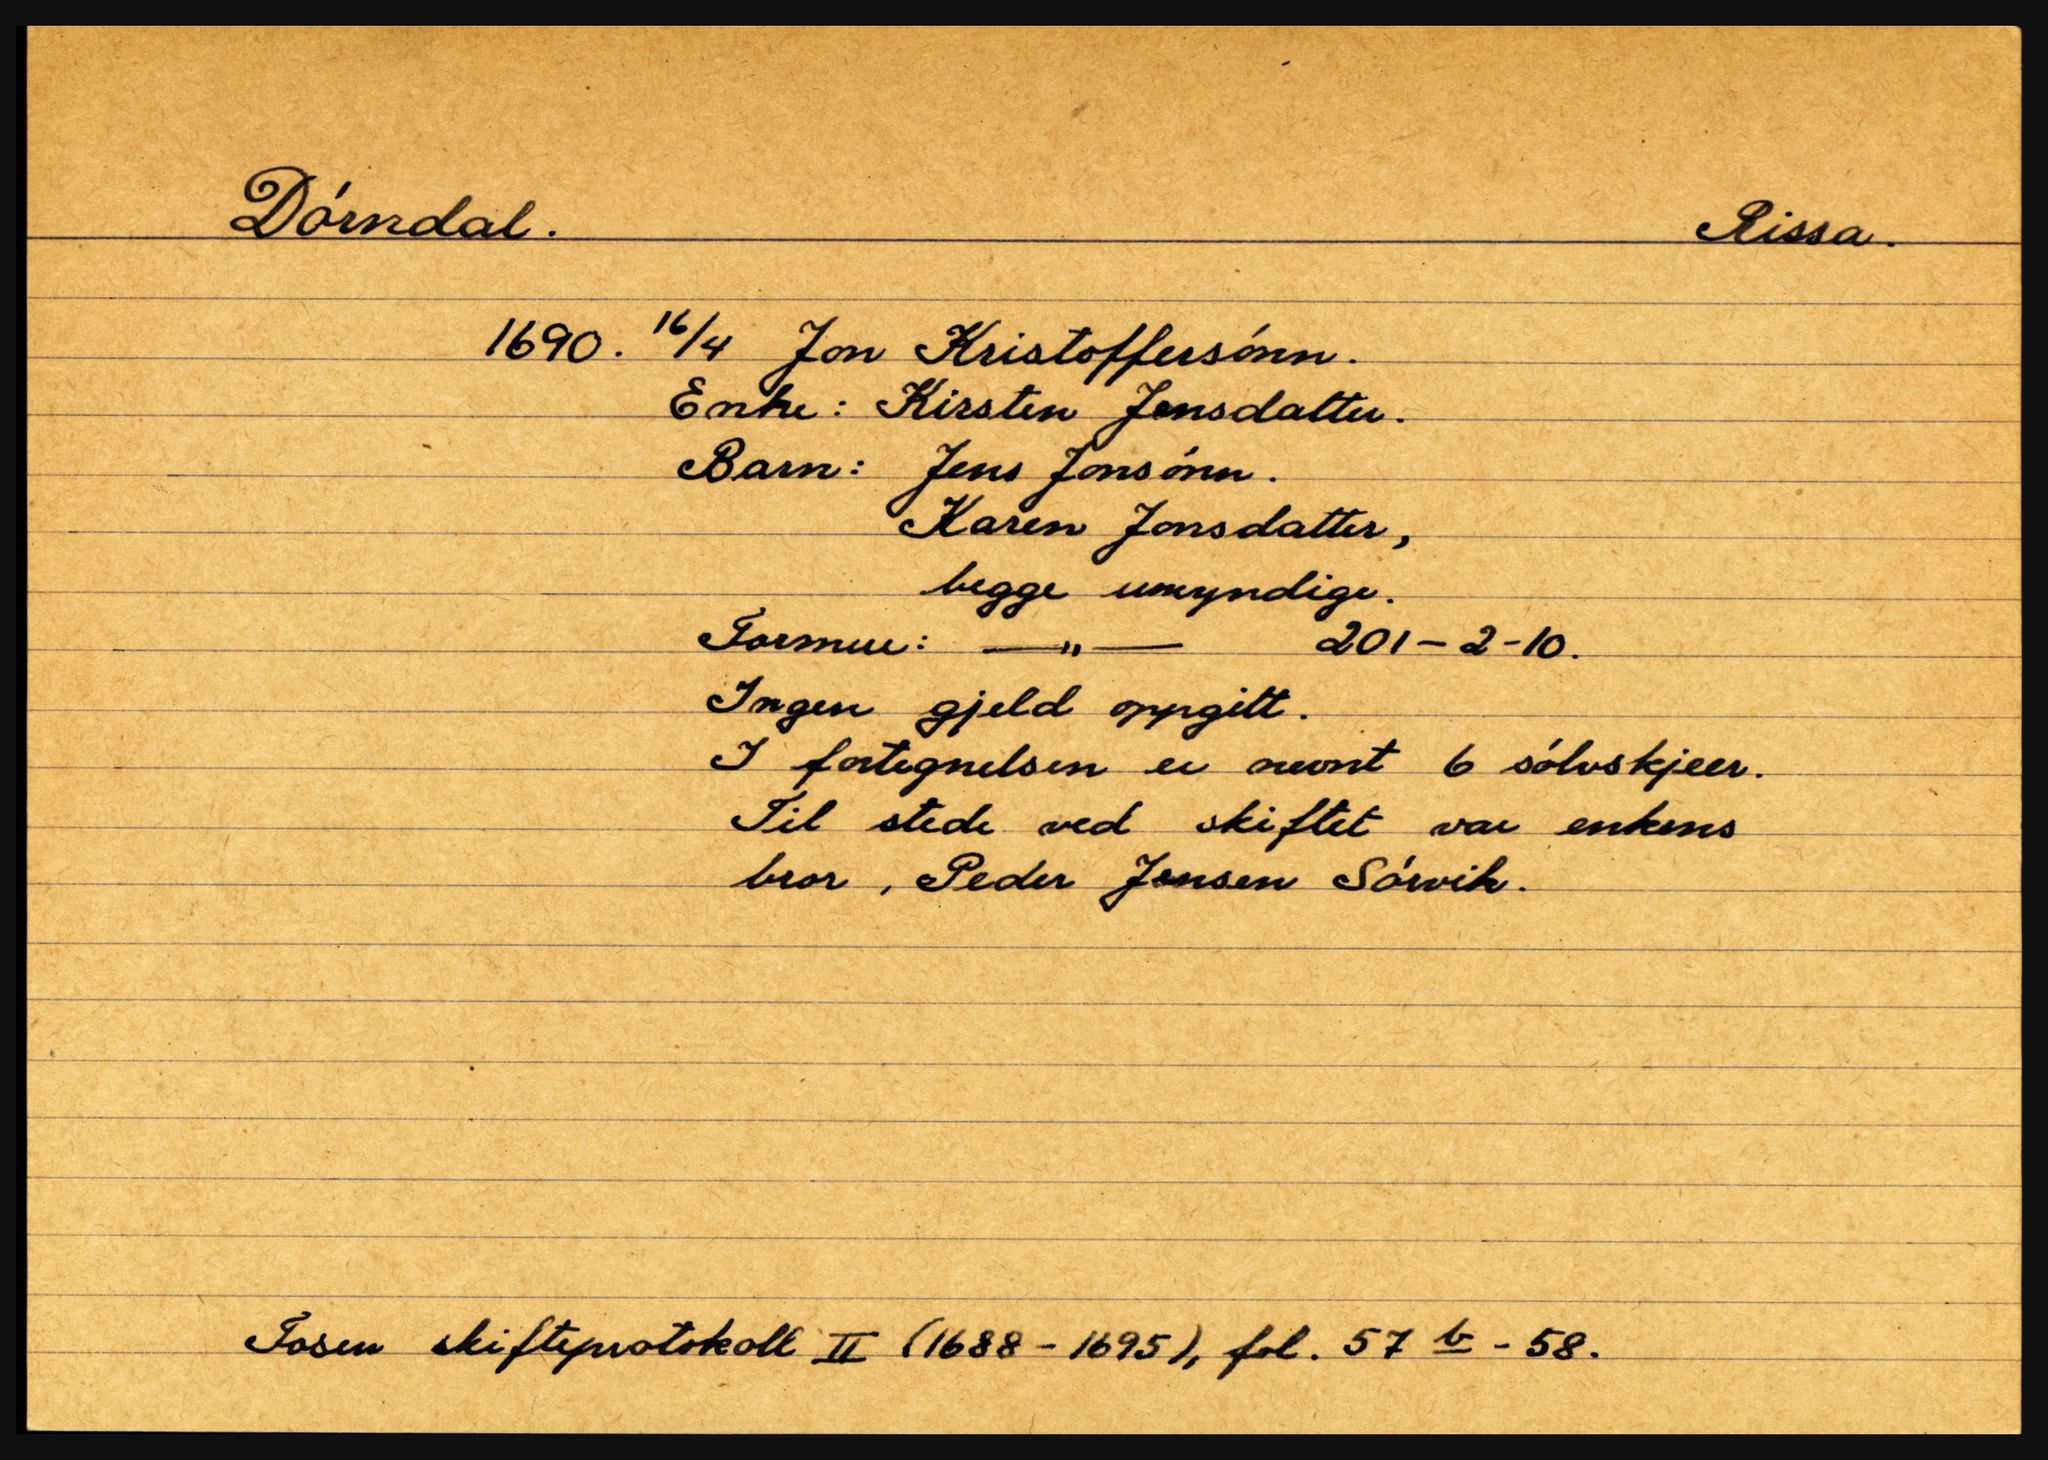 Dórndal. Rissa.
1690. 16/4 Jon Kristoffersónn.
Enke: Kirsten Jensdatter.
Barn: Jens Jonsónn.
Karen Jonsdatter,
begge umyndige.
Formue: —"— 201-2-10.
Ingen gjeld oppgitt.
I fortegnelsen er nevnt 6 sólvskjeer.
Til stede ved skiftet var enkens
bror, Peder Jensen Sórvik.
Fosen skifteprotokoll II (1688-1695), fol. 57 b - 58.